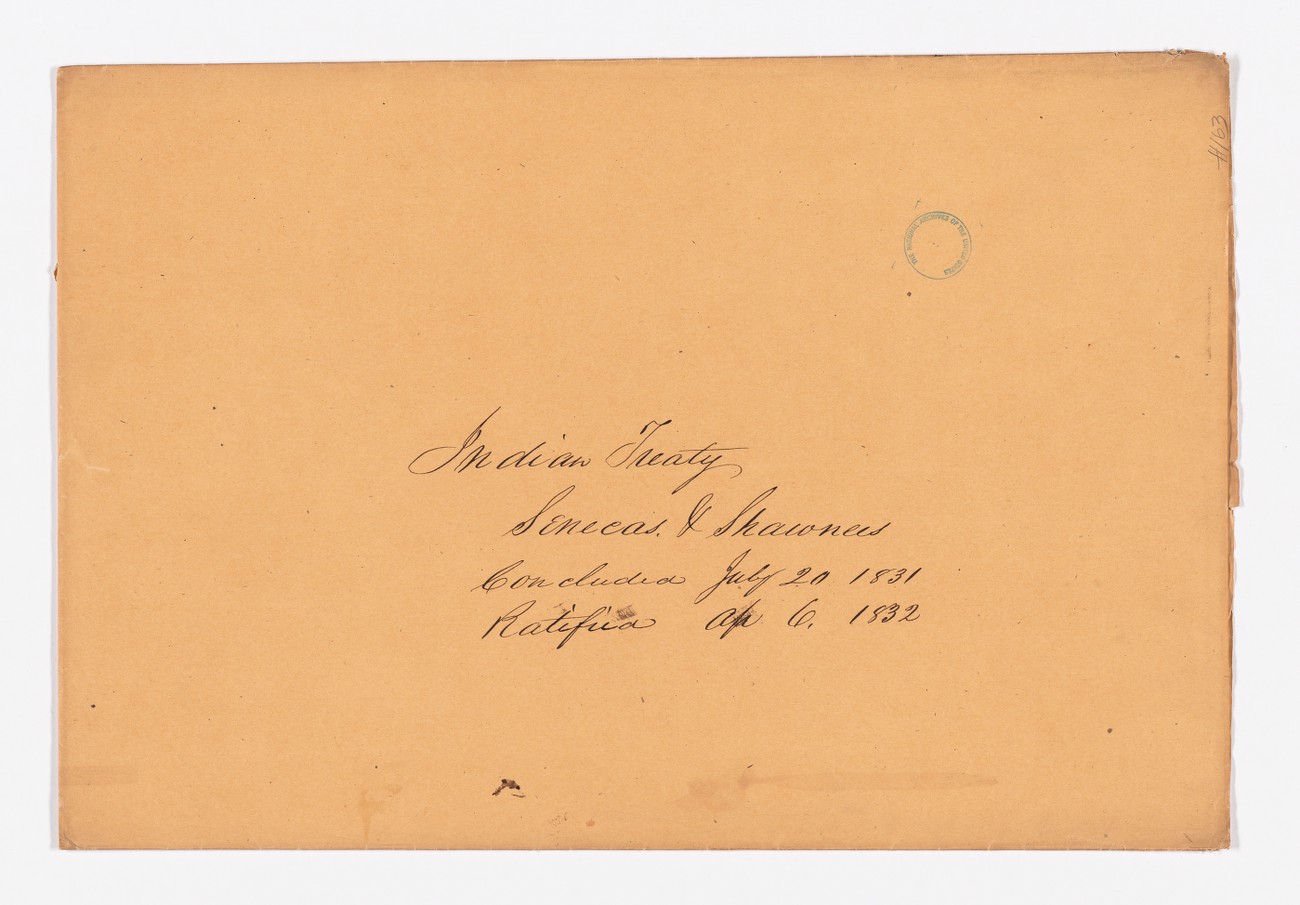 #163
THE NATIONAL ARCHIVES OF THE UNITED STATES
Indian Treaty
Senecas. & Shawnees
Concluded July 20 1831
Ratified Ap 6. 1832